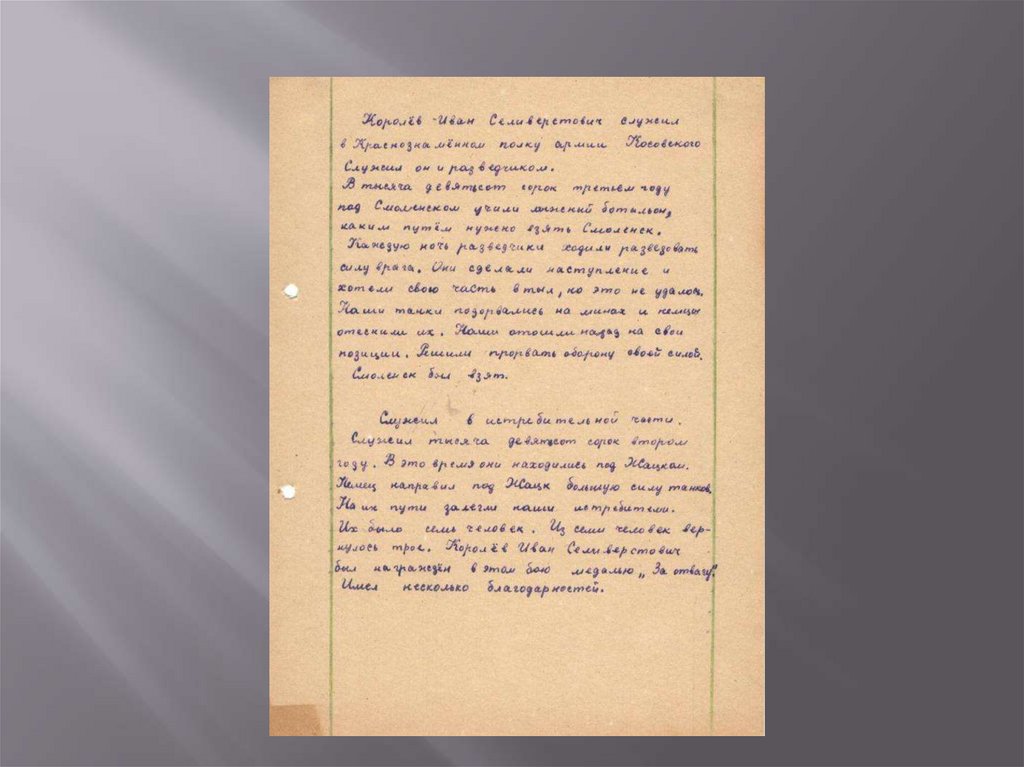 Королёв Иван Селиверстович служил
в Краснознамённом полку армии Косовского
Служил он и разведчиком.
В тысяча девятьсот сорок третьем году
под Смоленском учили лыжний ботыльон,
каким путём нужно взять Смоленск.
Каждую ночь разведчики ходили разведовать
силу врага. Они сделали наступление и
хотели свою часть в тыл, но это не удалось.
Наши танки подорвались на минах и немцы
отеснили их. Наши отошли назад на свои
позиции. Решили прорвать оборону своей силой.
Смоленск был взят.
Служил в истребительной части.
Служил тысяча девятьсот сорок втором
году. В это время они находились под Жацком.
Немец направил под Жацк большую силу танков.
На их пути залегли наши истребители.
Их было семь человек. Из семи человек вер-
нулось трое. Королёв Иван Селиверстович
был награждён в этом бою медалью „За отвагу".
Имел несколько благодарностей.